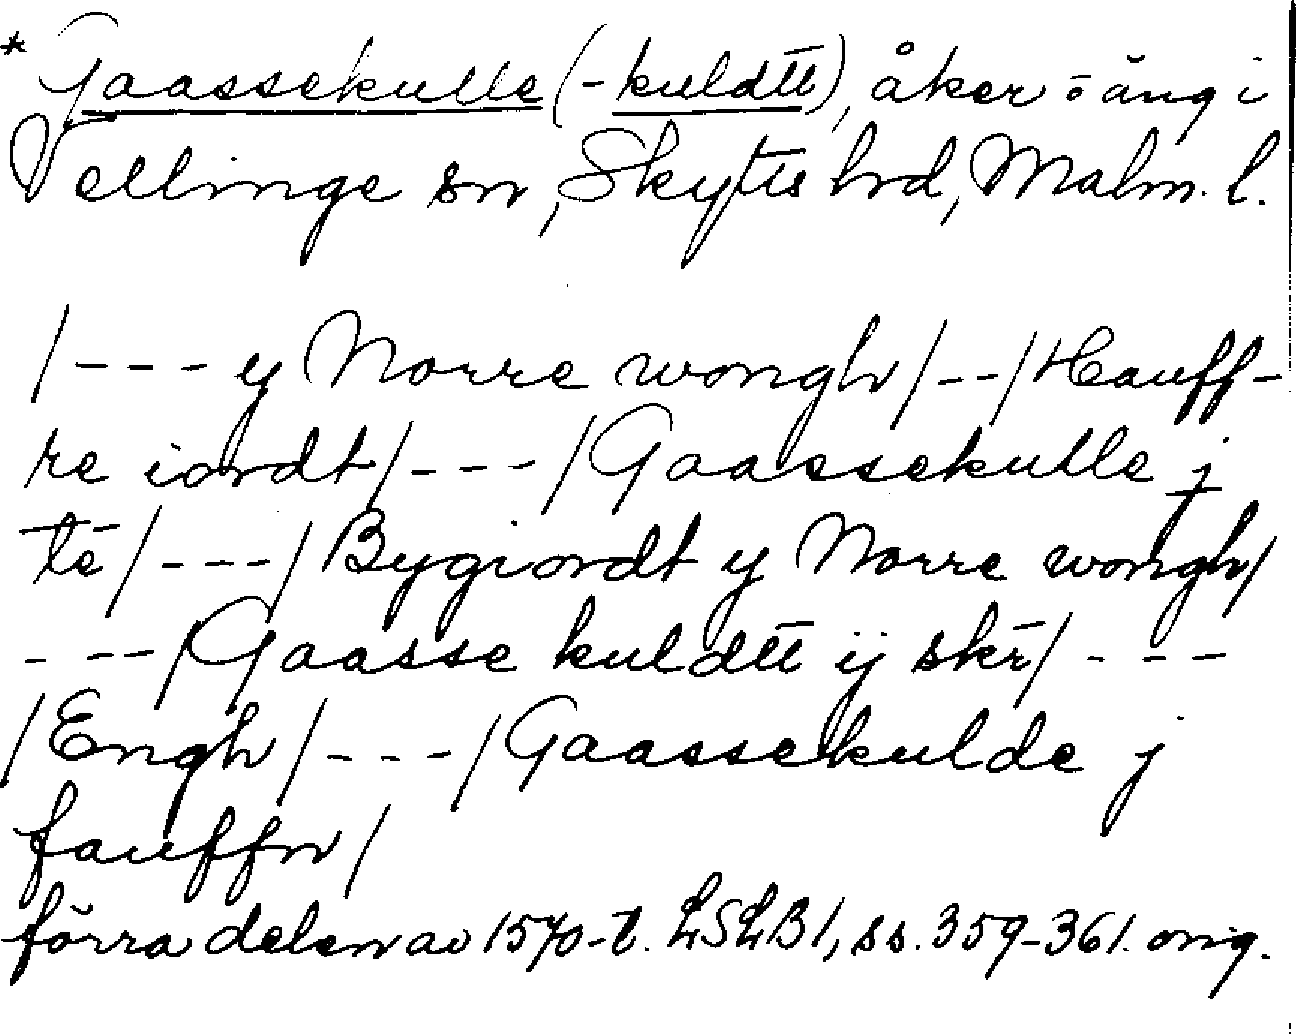 * Gaassekulle (-kuldtt), åker o äng i
Vellinge sn, Skytts hrd, Malm. l.
/--- y Norre wongh/--/Hauff-
re iordt/---/Gaassekulle j
te/---/Bygiordt y Norre wongh/
---/Gaasse kuldtt ij skr/---
/Engh/---/Gaassekulde j
fauffn/
förra delen av 1570-t. LSLB 1, ss. 359-361. orig.